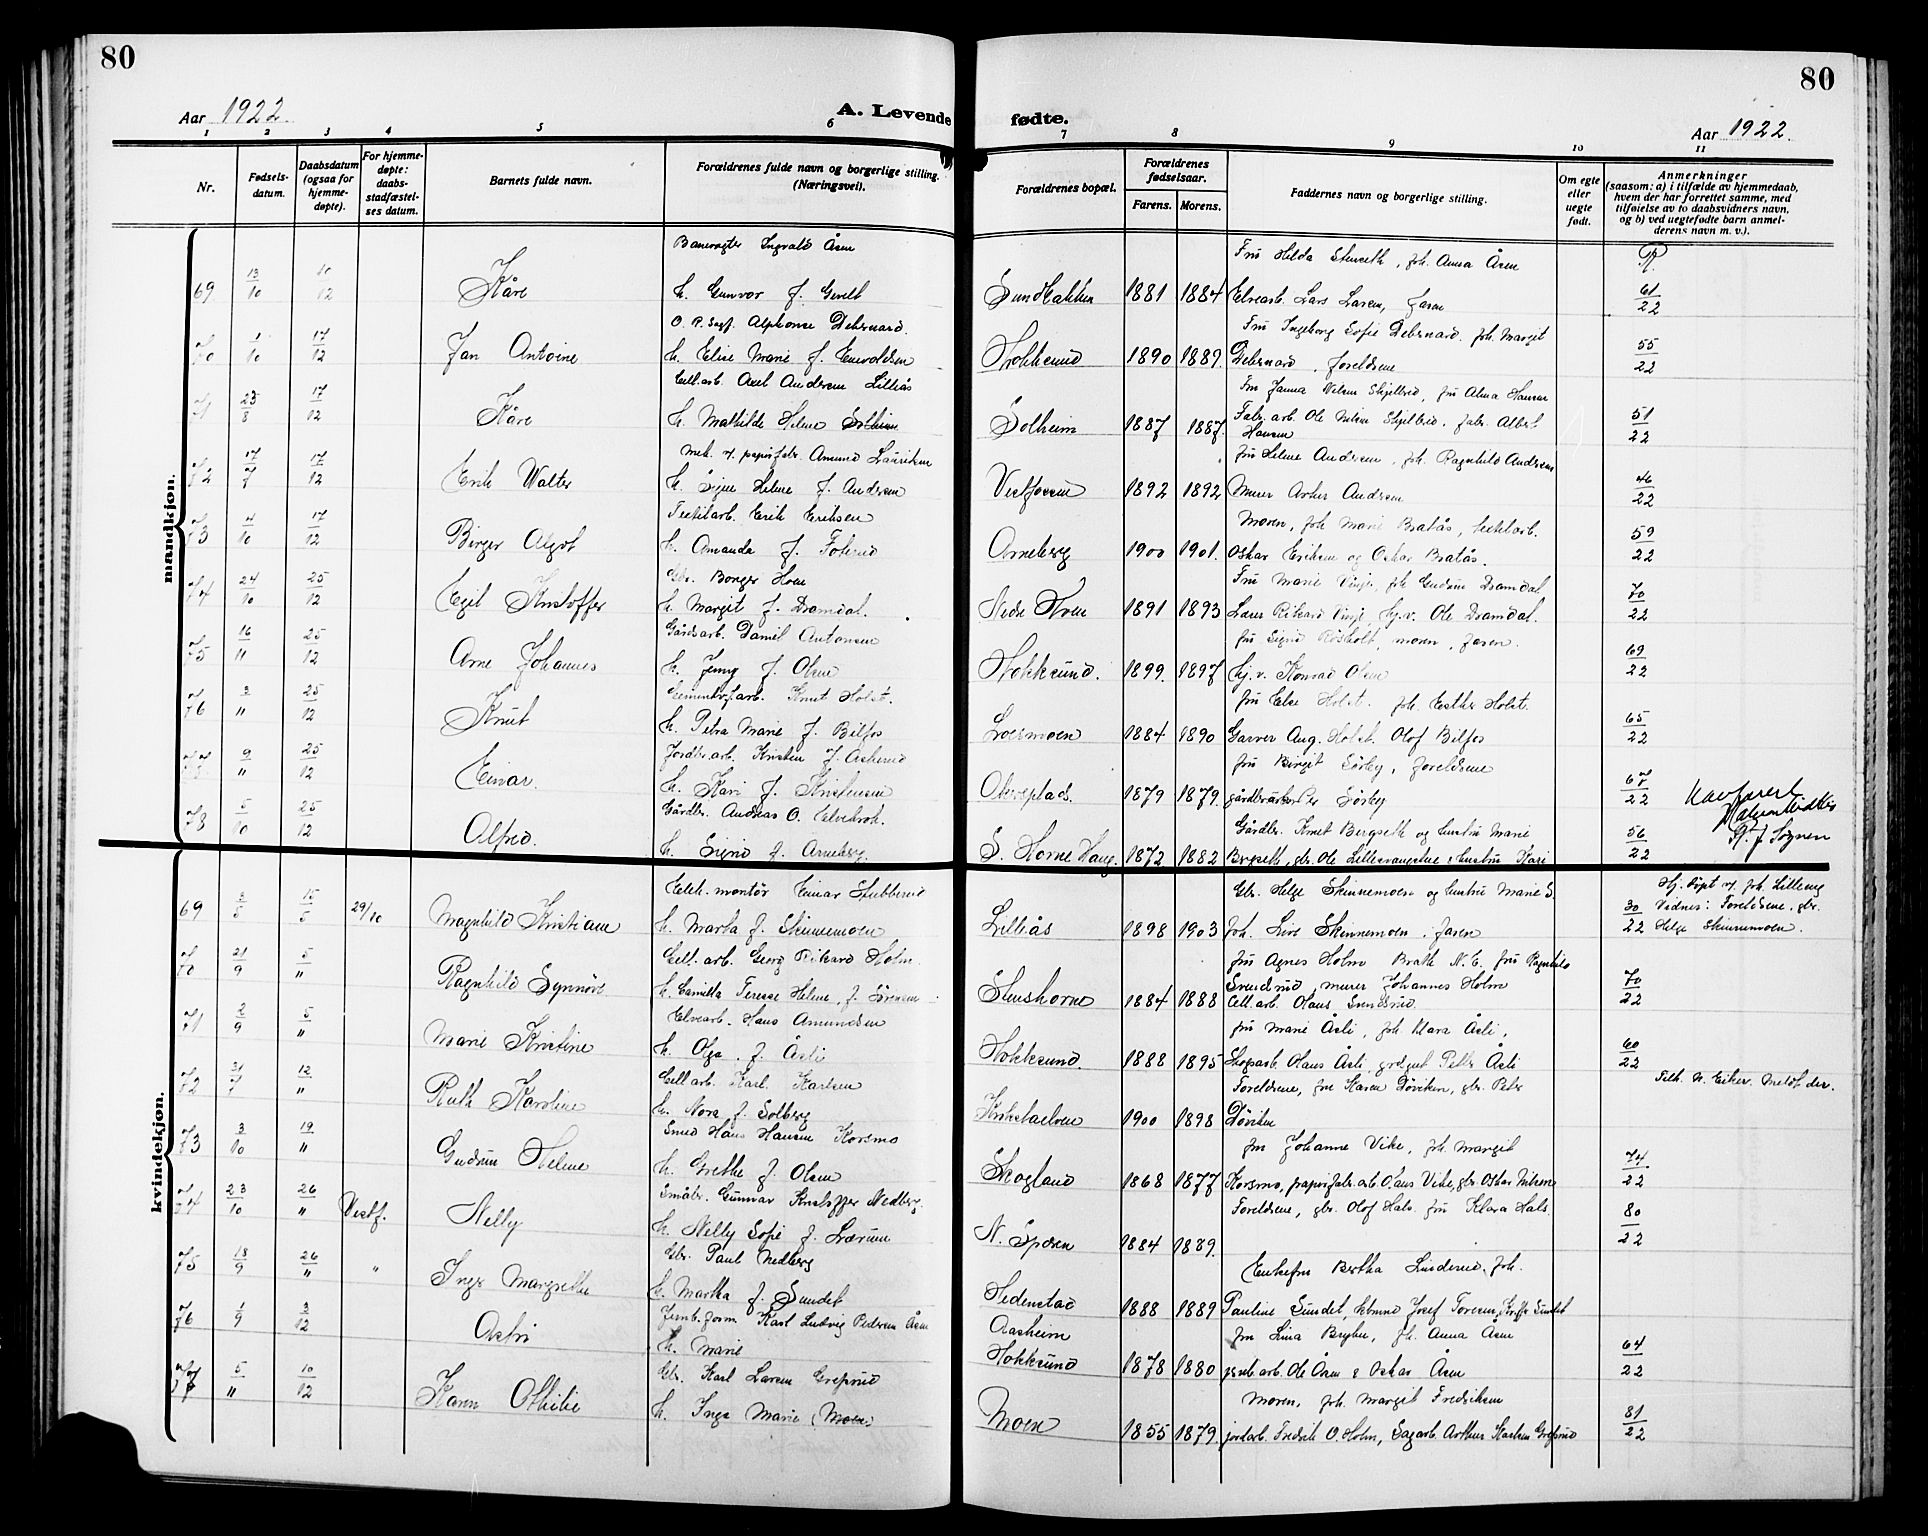 80
80
Aar 1922.
A. Levende fødte.
Aar 1922.
1 2 3 4 5 6 7 8 9 10 11
Nr.
Fødsels-
datum.
Daabsdatum
(ogsaa for
hjemme-
døpte).
For hjemme-
døpte:
daabs-
stadfæstel-
ses datum.
Barnets fulde navn.
Forældrenes fulde navn og borgerlige stilling.
(Næringsvei).
Forældrenes bopæl.
Forældrenes
fødselsaar.
Farens. Morens.
Faddernes navn og borgerlige stilling.
Om egte
eller
uegte
født.
Anmerkninger
(saasom: a) i tilfælde av hjemmedaab,
hvem der har forrettet samme, med
tilføielse av to daabsvidners navn,
og b) ved uegtefødte barn anmel-
derens navn m. v.).
mandkjøn.
Banevogter Ingvald Åsen
Fru Hilda Stenseth, frk. Anna Åsen
69 13/10 10/12 Kåre h. Gunvor f. 1881 1884 Elvearb. Lars Larsen, faren 61/22
O. R. Sagf. Alphonse Debernard.
Fru Ingeborg Sofie Debernard. frk. Margit
70 1/10 17/12 Jan Antoine h. Elise Marie f. Enevoldsen Hokksund 1890 1889. Debernard, foreldrene 55/22
Cell.arb. Axel Andersen Lilleås
Fru Janna Nilsen Skjelbred, fru Alma Hansen
71 23/8 17/12 Kåre h. Mathilde Helene Solheim Solheim 1887 1887. Fabr. arb. Ole Nilsen Skjelbred, fabr. Albert
Hansen 51/22
Mek. v. papirfabr. Amund Lauriksen
fru Helene Andersen, frk. Ragnhild Andersen
72 17/7 17/12 Erik Walter h. Signe Helene f. Andersen Vestfossen 1892 1892 Murer Artur Andersen 46/22
Textilarb. Erik Eriksen
Moren, frk. Marie Bratås, textilarb.
73 4/10 17/12 Birger Algot h. Amanda f. Foterud Arneberg 1900 1901. Oskar Eriksen og Oskar Bratås. 59/22
Gbr. Borger Hoen
Fru Marie Vinje, frk. Gudrun Dramdal,
74 24/10 25/12 Egil Kristoffer h. Margit f. Dramdal. Nedre Hoen 1891 1893 Lærer Rikard Vinje, hj.v. Ole Dramdal. 70/22
Gårdsarb. Daniel Antonsen
fru Signe Røsholt, moren, faren.
75 16/11 25/12 Arne Johannes h. Jenny f. Olsen Hokksund. 1899. 1897 Hj. v. Konrad Olsen 69/22
Knut Holst.
fru Else Holst. frk. Esther Holst.
76 3/" 25/12 Knut h. Petra Marie f. Bilfos Loesmoen 1884 1890 Garver Aug. Holst. Olof Bilfos 65/22
Jordbr.arb. Kristen J. Askerud
fru Birgit Sørby, foreldrene
77 9/" 25/12 Einar. h. Kari f. Kristensen 1879 1879. Per Sørby 67/22
Gårdbr. Andreas O. Elvebrok.
Gårdbr. Knut Bergseth og hustru Marie
78 5/10 25/12 Alfred. h. Sigrid f. Arneberg. S. Horne Haug. 1872 1882 Bergseth, gbr. Ole Lillesvangstue & hustru Kari 56/22
Konferert
kvindekjøn.
Elek. montør Einar Stubberud
Gbr. Helge Skinnemoen og hustru Marie S.
Hj. døpt v. frk. Lilleng
69 3/5 15/5 29/10 Magnhild Kristiane h. Marta f. Skinnemoen Lilleås 1898 1903 frk. Live Skinnemoen, faren 30/22 Vidner: Foreldrene, gbr.
Helge Skinnemoen.
Cell. arb. Georg Rikard Holm.
fru Agnes Holm Brath N. E. fru Ragnhild
70 21/9 5/" Ragnhild Synnøve h. Camilla Terese Helene, f. Sørensen Stenshorne 1884 1888 Svendsrud, murer Johannes Holm
Cell.arb. Olaus Svendsrud. 70/22
Elvearb. Hans Amundsen
fru Marie Åsli, frk. Klara Åsli,
71 2/9 5/" Marie Kristine h. Olga f. Åsli Hokksund. 1888 1895 Skogsarb. Olaus Åsli, Peder Åsli 60/22
Cell arb. Karl Karlsen
Foreldrene, fru Karen Døviken, gbr. Peder
Tilh. N. Eiker. Meldt der.
72 31/7 12/" Ruth Karoline h. Nora f. Solberg 1900 1898 Døviken
Smed Hans Hansen Korsmo
fru Johanne Vike, frk. Margit
73 3/10 19/" Gudrun Helene h. Grethe f. Olsen Skogland 1868 1877 Korsmo, papirfabr. arb. Olaus Vike, gbr. Oskar Nilsen 74/22
Småbr. Gunnar Kristoffer Nedberg.
Foreldrene, gbr. Olof Hals. fru Klara Hals.
74 23/10 26/" Vestf. Nelly h. Nelly Sofie f. Lærum N. Spæren 1884 1889. 80/22
Gbr. Paul Nedberg
Enkefru Bertha Linderud, frk.
75 18/9 26/" " Inger Margrethe h. Martha f. Sundet Hedenstad 1888 1889 Pauline Sundet, Josef Toresen, Sundet
Jernb. form. Karl Ludvig Pedersen Åsen
Aasheim
fru Lina Bryhn, frk. Anna Åsen
76 1/9 3/12 Astri h. Marie Hokksund 1878 1880 jernb.arb. Ole Åsen & Oskar Åsen 64/22
Gbr. Karl Larsen Grepsrud
Moren, frk. Margit Fredriksen
77 5/" 10/12 Karen Othilie h. Inga Marie (Moen) Moen 1855 1879. jordarb. Fredrik O. Holm, Sagarb. Arthur Karlsen Grepsrud 81/22